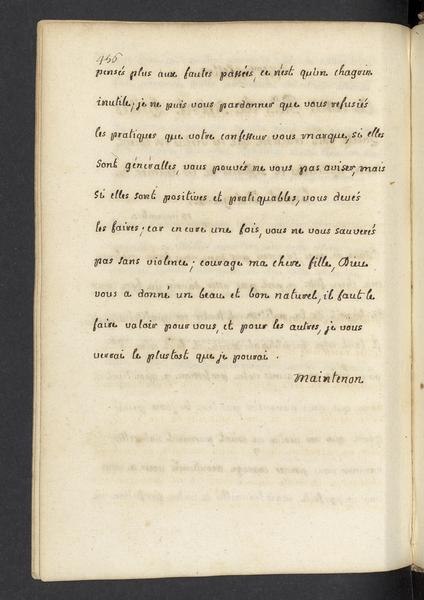 456
pensés plus aux fautes passées, ce n'est qu'un chagrin
inutile, je ne puis vous pardonner que vous refusiés
les pratiques que votre confesseur vous marque, si elles
sont générales, vous pouvés ne vous pas aviser, mais
si elles sont positives et pratiquables, vous devés
les faires; car encore une fois, vous ne vous sauverés
pas sans violence; courage ma chere fille, Dieu
vous a donné un beau et bon naturel, il faut le
faire valoir pour vous, et pour les autres, je vous
verrai le plustost que je pourai.
Maintenon